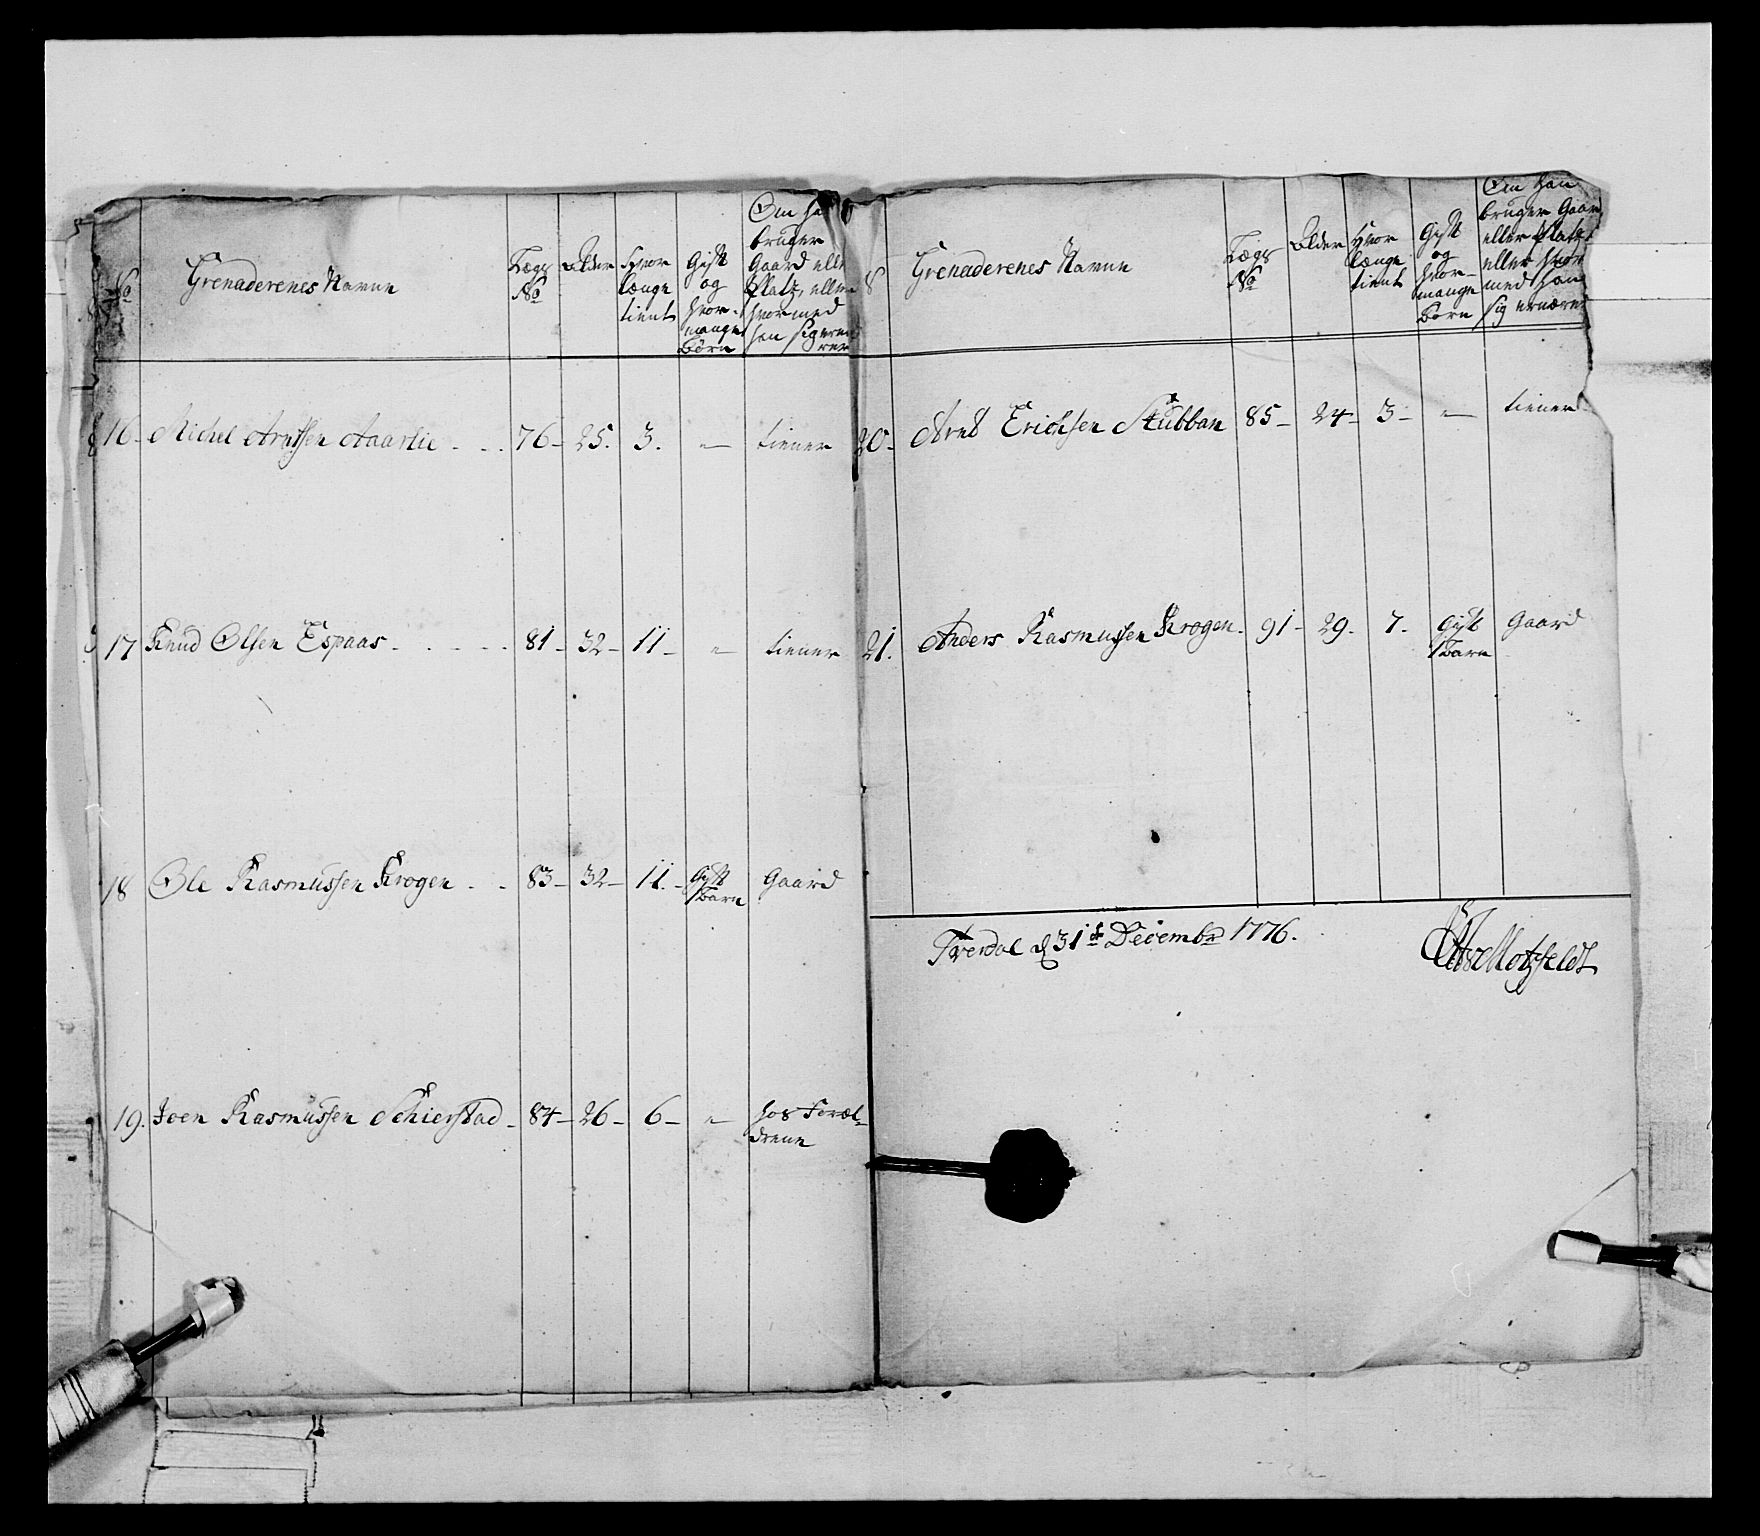 No
Grenaderenes Navne
Lægs No
Alder
Hvor længe tient
Gift og hvor-mange Børn
Om ha bruger Gaard elle Platz, eller hvormed han sig ernæ rer
16. Michel Arntsen Aaarlie - - . 76 - 25. 3. - tiener
17 Knud Olsen Espaas - - - - - 81 - 32 - 11 - - tiener
18 Ole Rasmussen Krogen - - 83 - 32 - 11. - Gift 1 Barn Gaard
19. Joen Rasmussen Schierstad - 84 - 26 - 6 - - hos Foræl-
drene
Grenaderenes Navne
Lægs No
Alder
Hvor længe tient
Gift og hvor-mange Børn
Om han bruger Gaard eller Platz eller hvor med han sig ernærer
20 - Arnt Erichsen Stubban 85 - 24 - 3 - - tiener
21. Anders Rasmussen Krogen - 91 - 29. 7. Gift 1 Barn Gaard
d 31te Decembr 1776.
Motzfeldt